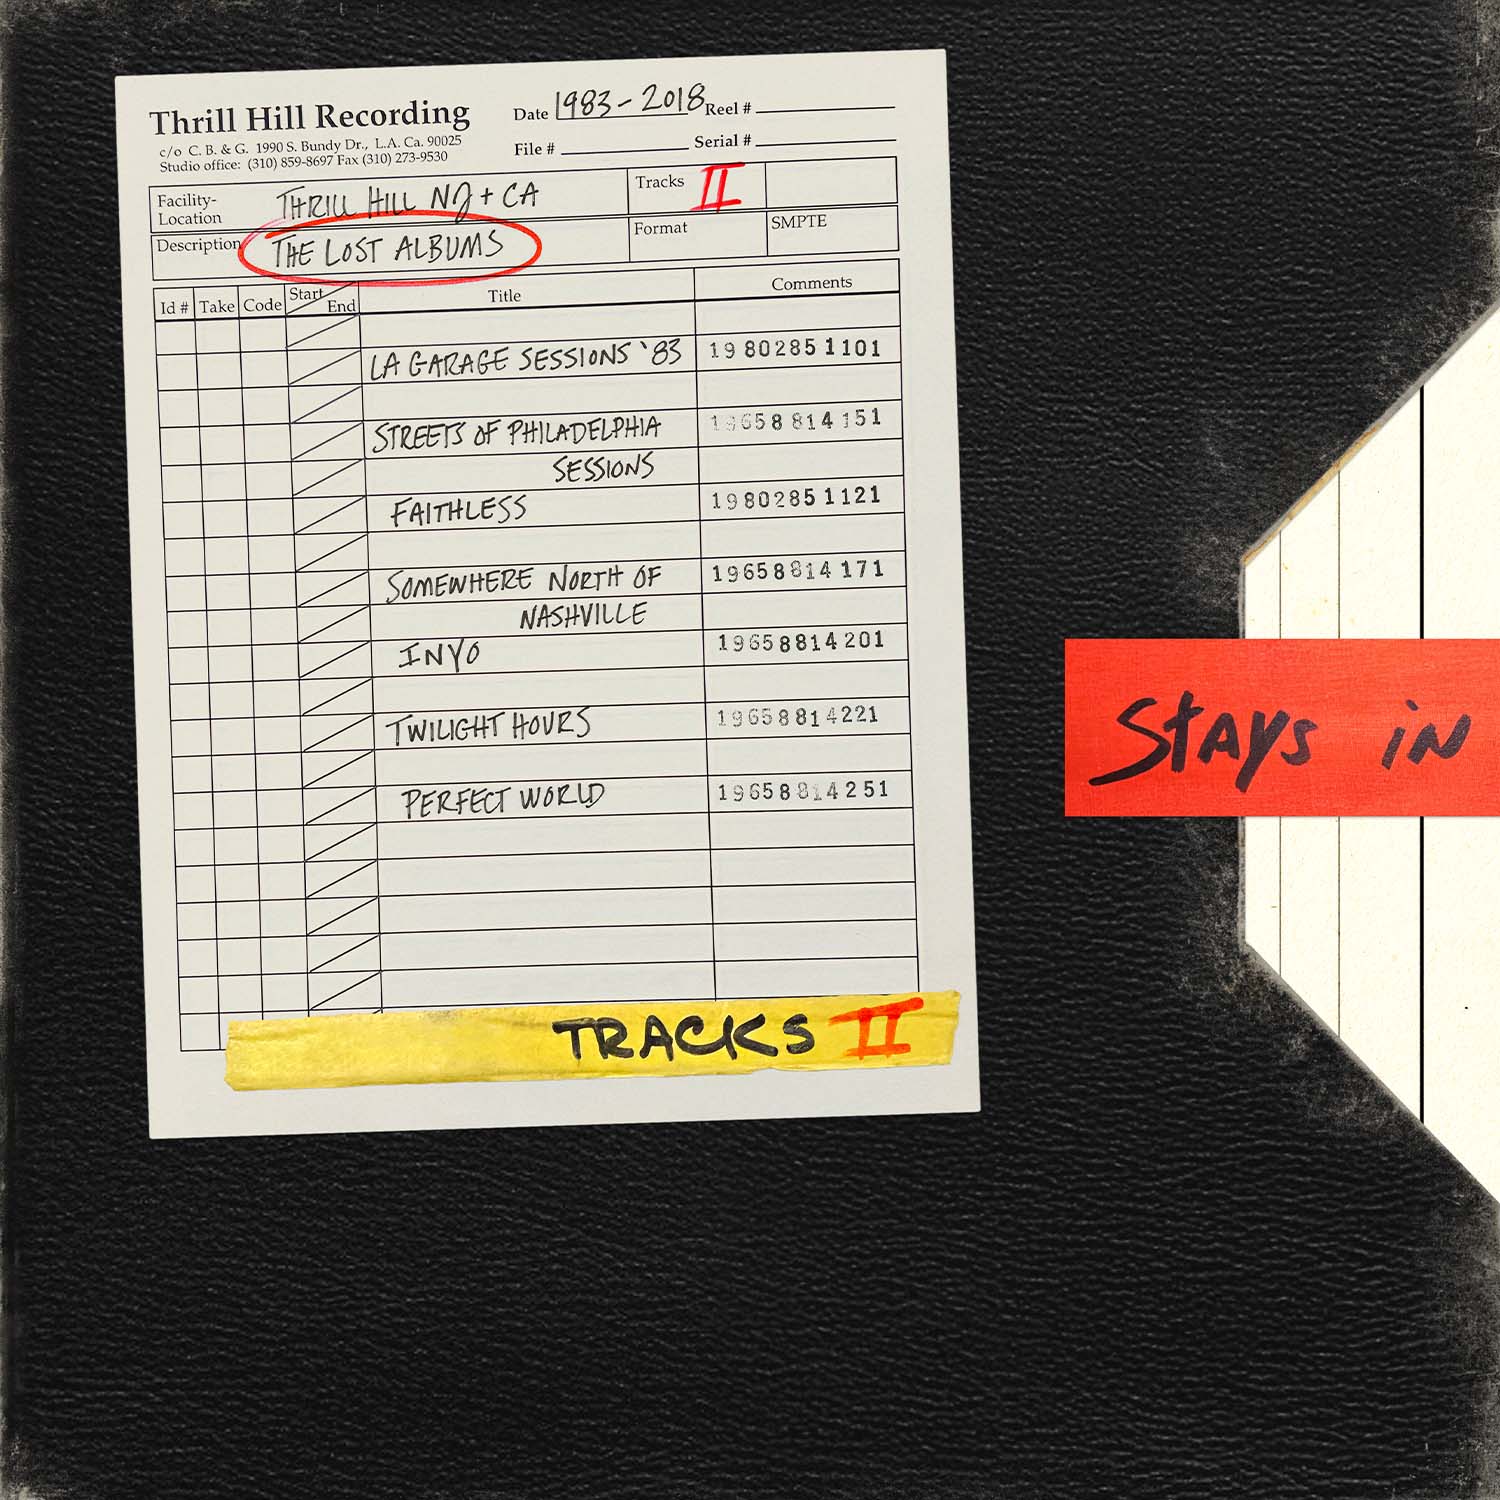 Thrill Hill Recording
c/o C. B. & G. 1990 S. Bundy Dr., L.A. Ca. 90025
Studio office: (310) 859-8697 Fax (310) 273-9530
Date 1983-2018 Reel #
File # Serial #
Facility-Location THRILL HILL NJ + CA Tracks II
Description THE LOST ALBUMS Format SMPTE
Id # Take Code Start End Title Comments
LA GARAGE SESSIONS '83 19802851101
STREETS OF PHILADELPHIA 19658814151
SESSIONS
FAITHLESS 19802851121
SOMEWHERE NORTH OF 19658814171
NASHVILLE
INYO 19658814201
TWILIGHT HOURS 19658814221
PERFECT WORLD 19658814251
TRACKS II
Stays in